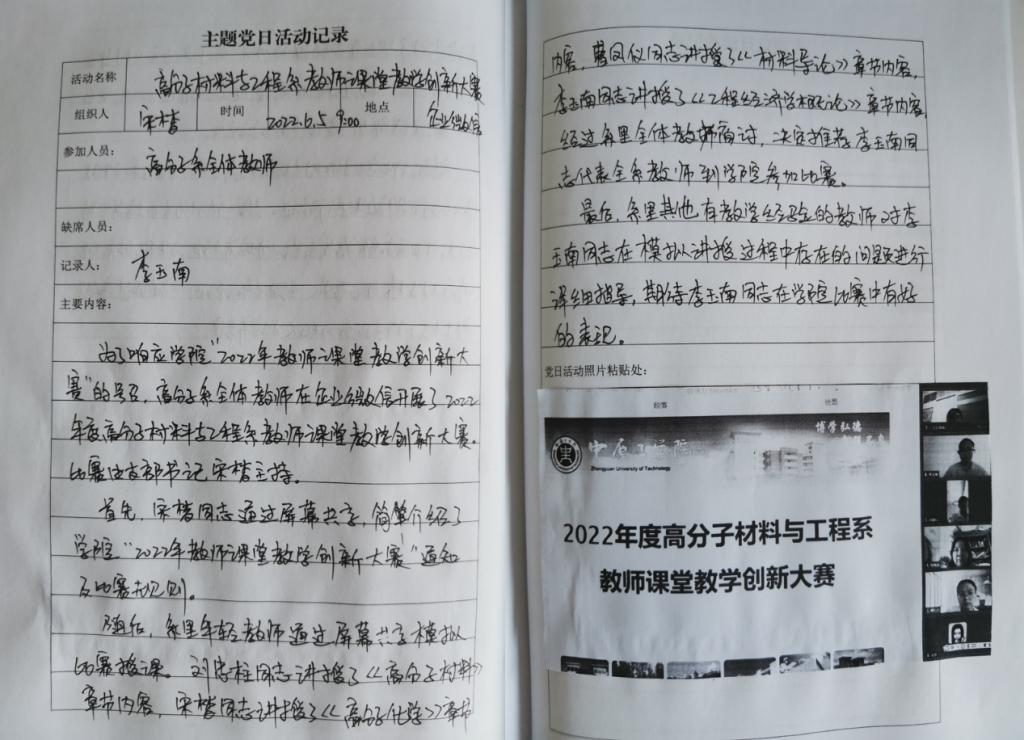 主题党日活动记录
活动名称 高分子材料与工程系教师课堂教学创新大赛
组织人 宋楷 时间 2022.6.5 9:00 地点 企业微信
参加人员： 高分子系全体教师
缺席人员：
记录人： 李玉南
主要内容：
为了响应学院“2022年教师课堂教学创新大
赛”的号召，高分子系全体教师在企业微信开展了2022
年度高分子材料与工程系教师课堂教学创新大赛。
比赛由支部书记宋楷主持。
首先，宋楷同志通过屏幕共享，简单介绍了
学院“2022年教师课堂教学创新大赛”通知
及比赛规则。
随后，系里年轻教师通过屏幕共享模拟
比赛授课。刘
同志讲授了《高分子材料》
章节内容，宋楷同志讲授了《高分子化学》章节
内容，曹凤仪同志讲授了《材料导论》章节内容，
李玉南同志讲授了《工程经济学概论》章节内容，
经过系里全体教师商讨，决定推荐李玉南同
志代表全系教师到学院参加比赛。
最后，系里其他有教学经验的教师对李
玉南同志在模拟讲授过程中存在的问题进行
详细指导，期待李玉南同志在学院比赛中有好
的表现。
党日活动照片粘贴处：
段落
中原工学院
Zhongyuan University of Technology
博学弘德
2022年度高分子材料与工程系
教师课堂教学创新大赛